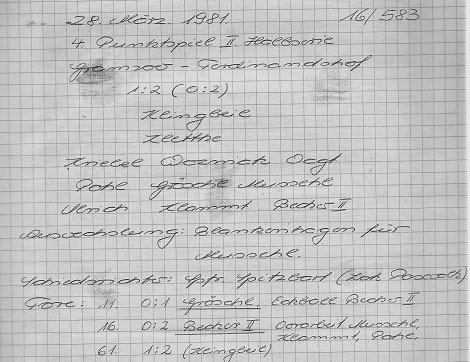 28. März 1981. 16/583
4 Punktspiel II. Halbserie
Gramzow - Ferdinandshof
1:2 (0:2)
Klingbeil
Klettke
Knebel Wozniak Vogt
Pohl Grösche Muschel
Ulrich Klammt Becher II
Auswechslung: Blankenhagen für
Muschel.
Schiedsrichter: Spfr. Spitzbart (Lok Pasewalk)
Tore: 11. 0:1 Grösche, Eckball Becher II
16. 0:2 Becher II Vorarbeit Muschel,
Klammt, Pohl.
61. 1:2 (Klingbeil)